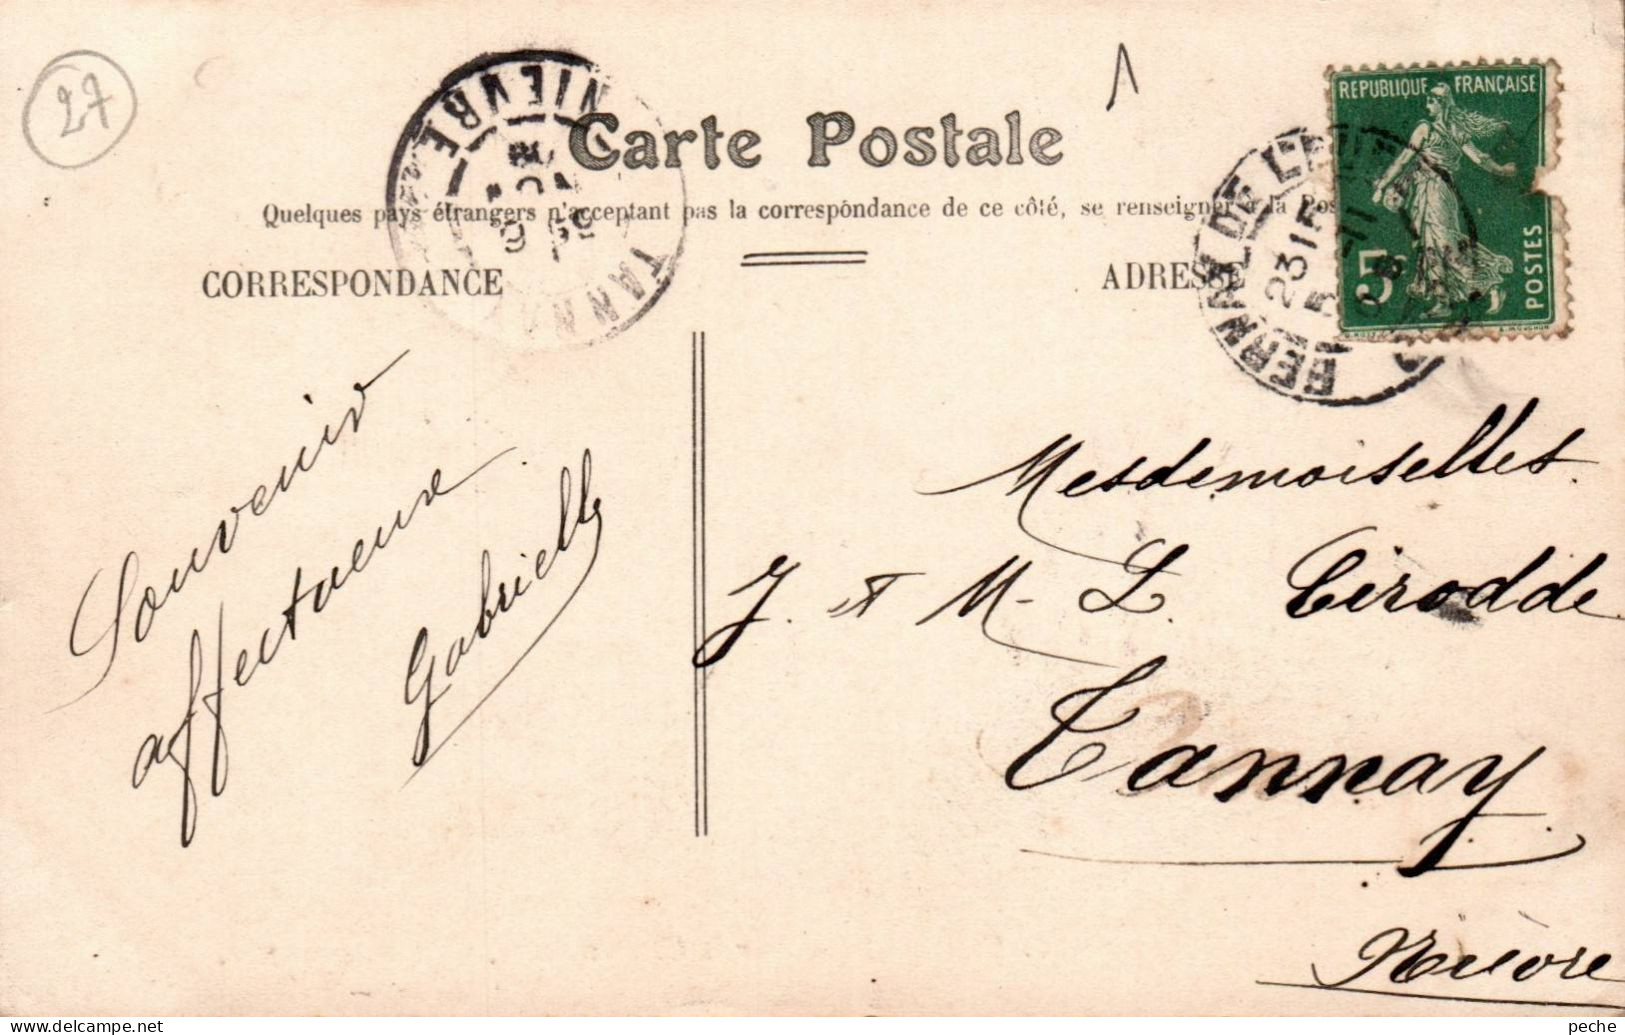 27
1
Carte Postale
Quelques pays étrangers n'acceptant pas la correspondance de ce côté, se renseigner à la Pos
CORRESPONDANCE
ADRESSE
NIEVRE
TANN
23 15
5
REPUBLIQUE FRANÇAISE
5c
POSTES
Souvenir
affectueux
Gabrielle
Mesdemoiselles
J. et M. L. Cirodde
Tannay
Nièvre
peche